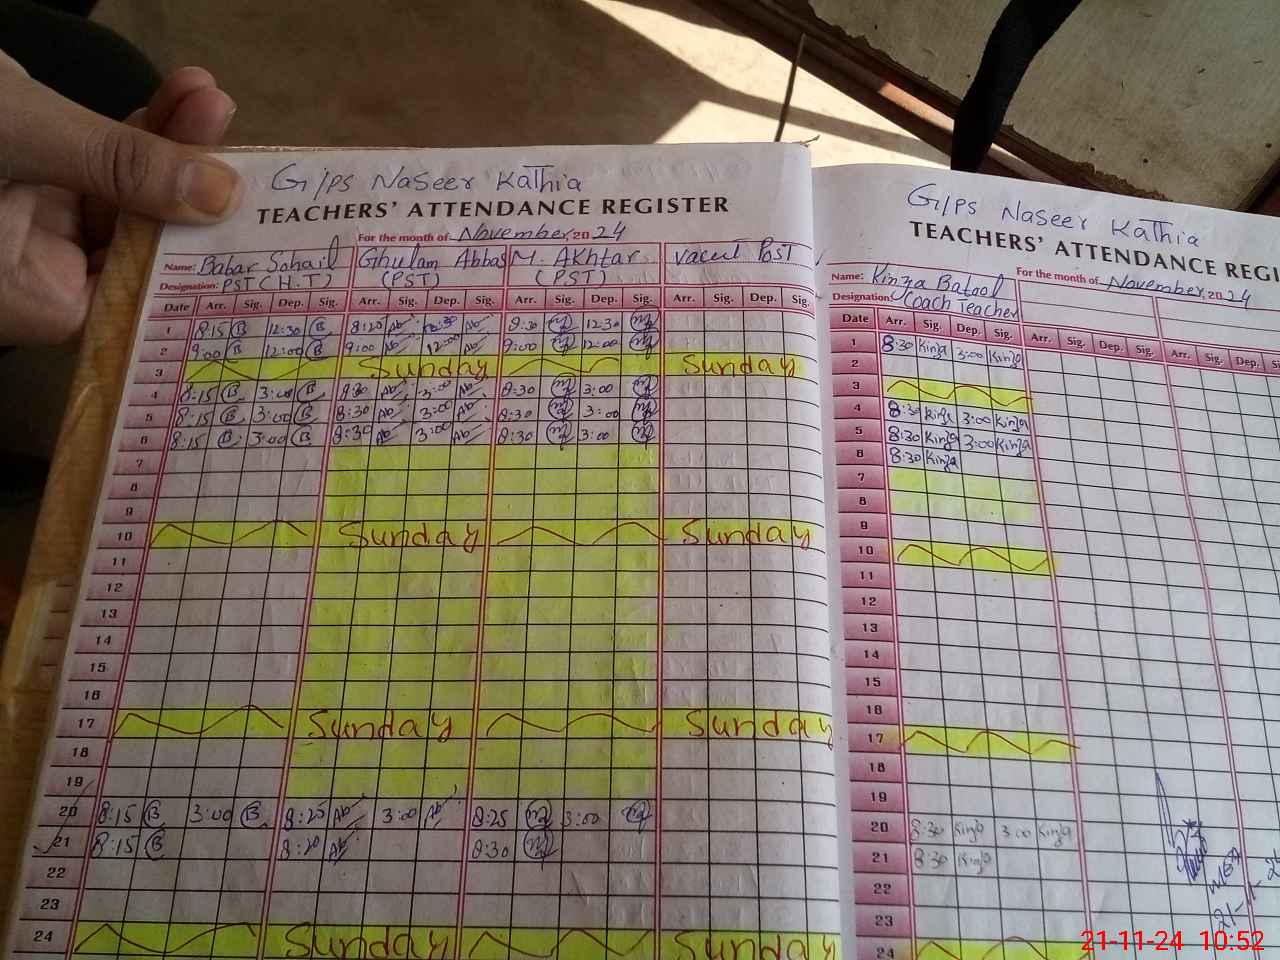 G/PS Naseer Kathia
TEACHERS' ATTENDANCE REGISTER
For the month of November, 2024
Name: Babar Sohail Ghulam Abbas M. Akhtar vacut Post
Designation: PST (H.T) (PST) (PST)
Date Arr. Sig. Dep. Sig. Arr. Sig. Dep. Sig. Arr. Sig. Dep. Sig. Arr. Sig. Dep. Sig.
1 8:15 B 12:30 B 8:25 Ab 12:30 Ab 8:30 12:30
2 9:00 B 12:00 B 9:00 Ab 12:00 Ab 9:00 12:00
3 Sunday Sunday
4 8:15 B 3:00 B 8:30 Ab 3:00 Ab 8:30 3:00
5 8:15 B 3:00 B 8:30 Ab 3:00 Ab 8:30 3:00
6 8:15 B 3:00 B 8:30 Ab 3:00 Ab 8:30 3:00
7
8
9
10 Sunday Sunday
11
12
13
14
15
16
17 Sunday Sunday
18
19
20 8:15 B 3:00 B 8:25 Ab 3:00 Ab 8:25 3:00
21 8:15 B 8:20 Ab 8:30
22
23
24 Sunday Sunday
G/PS Naseer Kathia
TEACHERS' ATTENDANCE REGI
For the month of November, 2024
Name: Kinza Batool
Designation: Coach Teacher
Date Arr. Sig. Dep. Sig. Arr. Sig. Dep. Sig. Arr. Sig. Dep. S
1 8:30 Kinza 3:00 Kinza
2
3
4 8:30 Kinza 3:00 Kinza
5 8:30 Kinza 3:00 Kinza
6 8:30 Kinza
7
8
9
10
11
12
13
14
15
16
17
18
19
20 8:30 Kinza 3:00 Kinza
21 8:30 Kinza
22
23
24
21-11-24 10:52